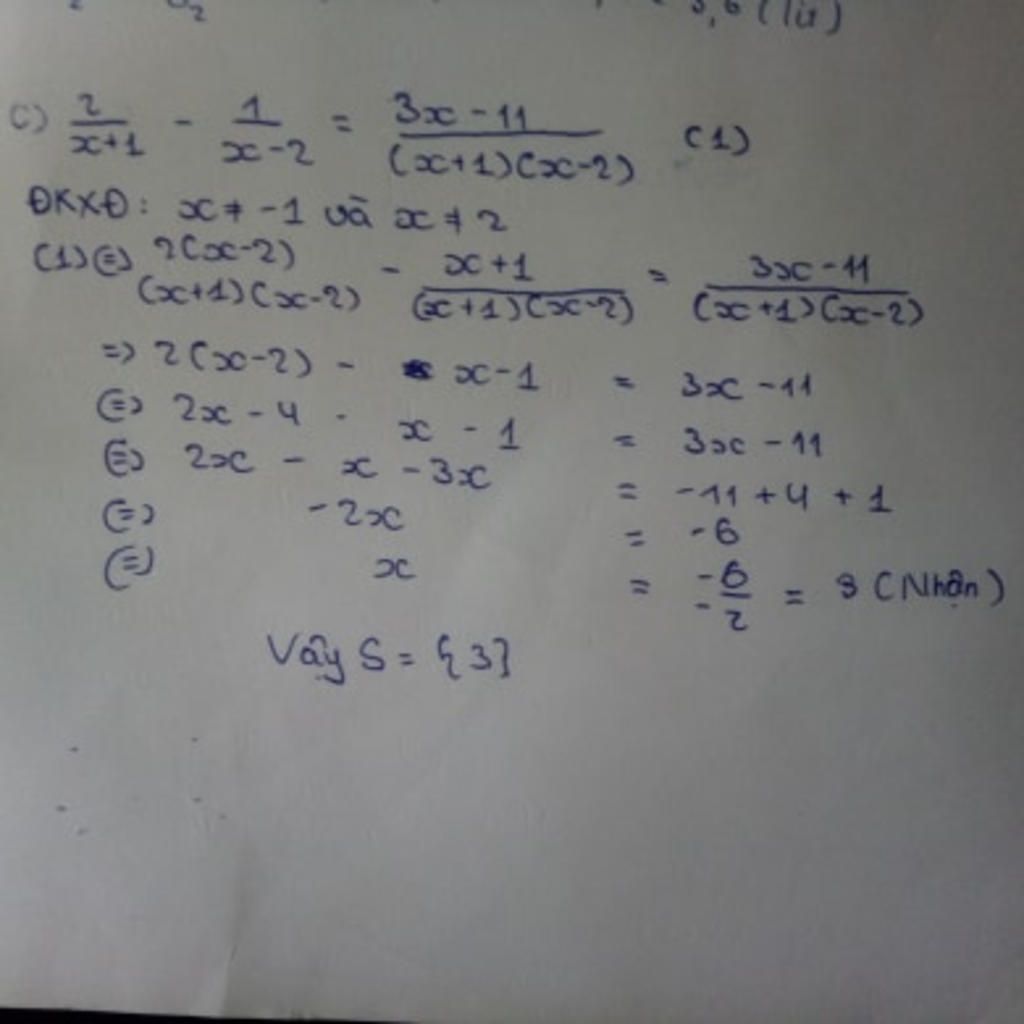 5,6 (lít)
c) 2/(x+1) - 1/(x-2) = (3x-11)/((x+1)(x-2)) (1)
ĐKXĐ: x ≠ -1 và x ≠ 2
(1) (=) 2(x-2)/((x+1)(x-2)) - (x+1)/((x+1)(x-2)) = (3x-11)/((x+1)(x-2))
=> 2(x-2) - x-1 = 3x-11
(=) 2x-4 - x-1 = 3x-11
(=) 2x - x - 3x = -11+4+1
(=) -2x = -6
(=) x = -6/-2 = 3 (Nhận)
Vậy S = {3}